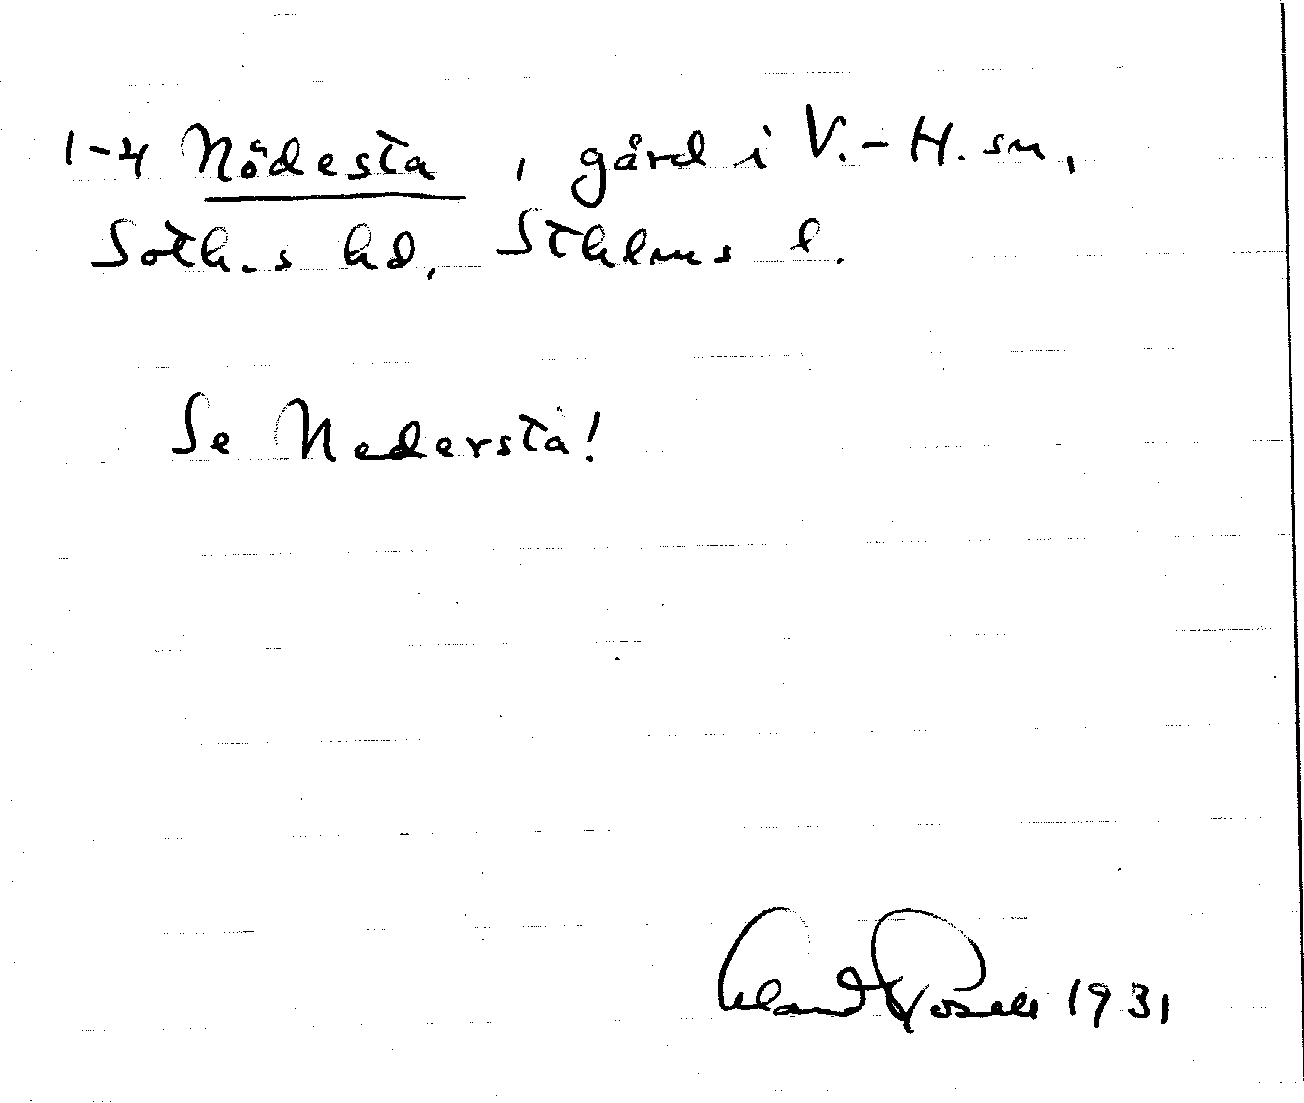 1-4 Nödesta, gård i V.-H. sn,
Soth.s hd, Sthlms l.
Se Nedersta!
1931